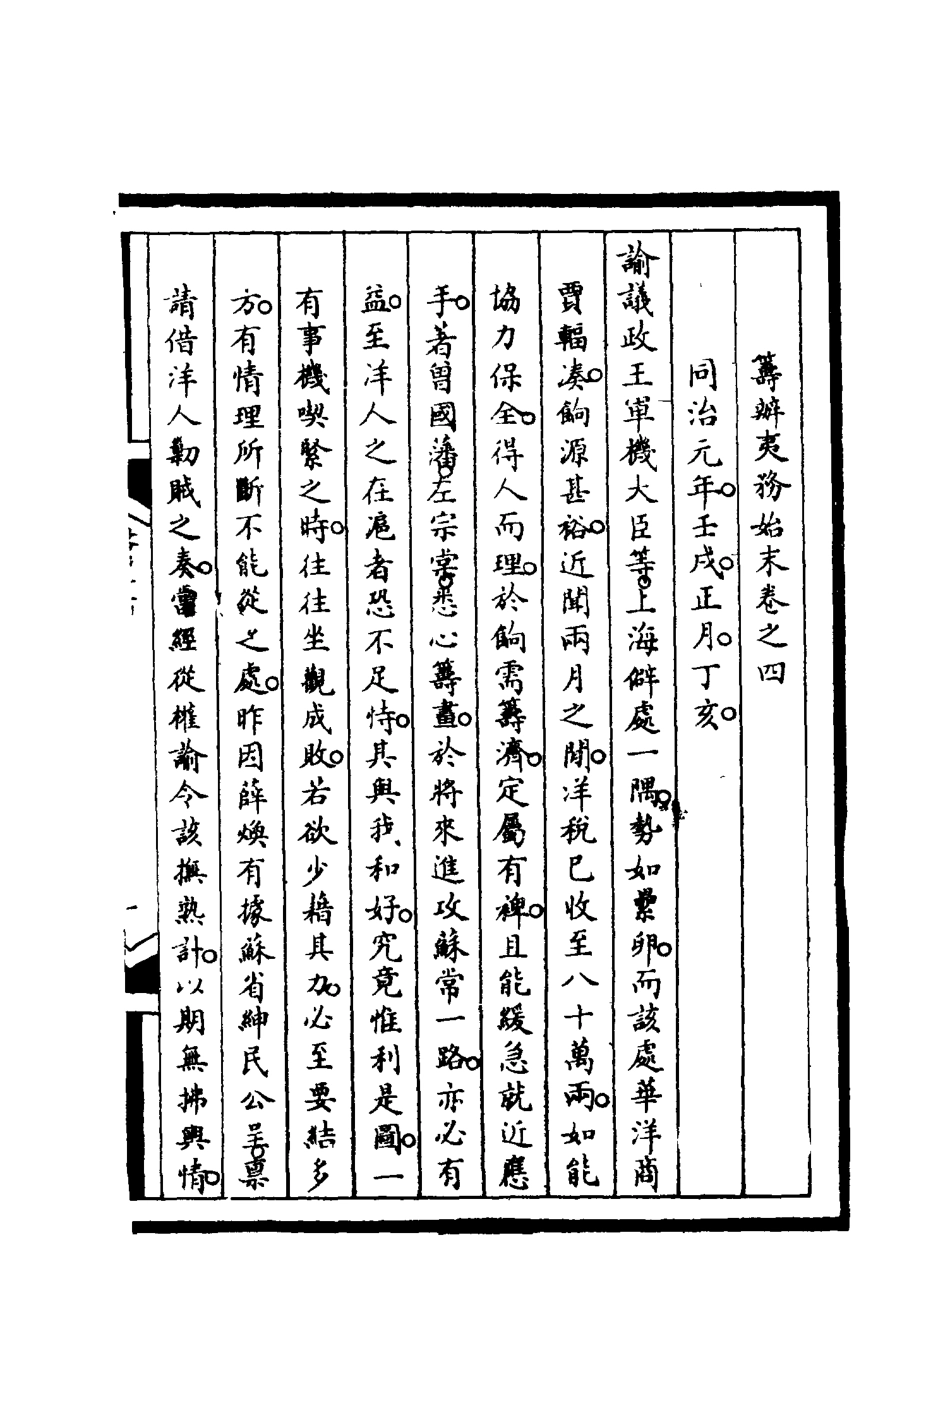 籌辦夷務始末卷之四
同治元年。壬戌。正月。丁亥。
諭議政王軍機大臣等。上海僻處一隅。勢如纍卵。而該處華洋商
賈輻湊。餉源甚裕。近聞兩月之間。洋稅已收至八十萬兩。如能
協力保全。得人而理。於餉需籌濟。定屬有裨。且能緩急就近應
手。著曾國藩。左宗棠。悉心籌畫。於將來進攻蘇常一路。亦必有
益。至洋人之在滬者恐不足恃。其與我和好。究竟惟利是圖。一
有事機喫緊之時。往往坐觀成敗。若欲少藉其力。必至要結多
方。有情理所斷不能從之處。昨因薛煥有據蘇省紳民公呈。稟
請借洋人勦賊之奏。當經從權諭令該撫熟計。以期無拂輿情。